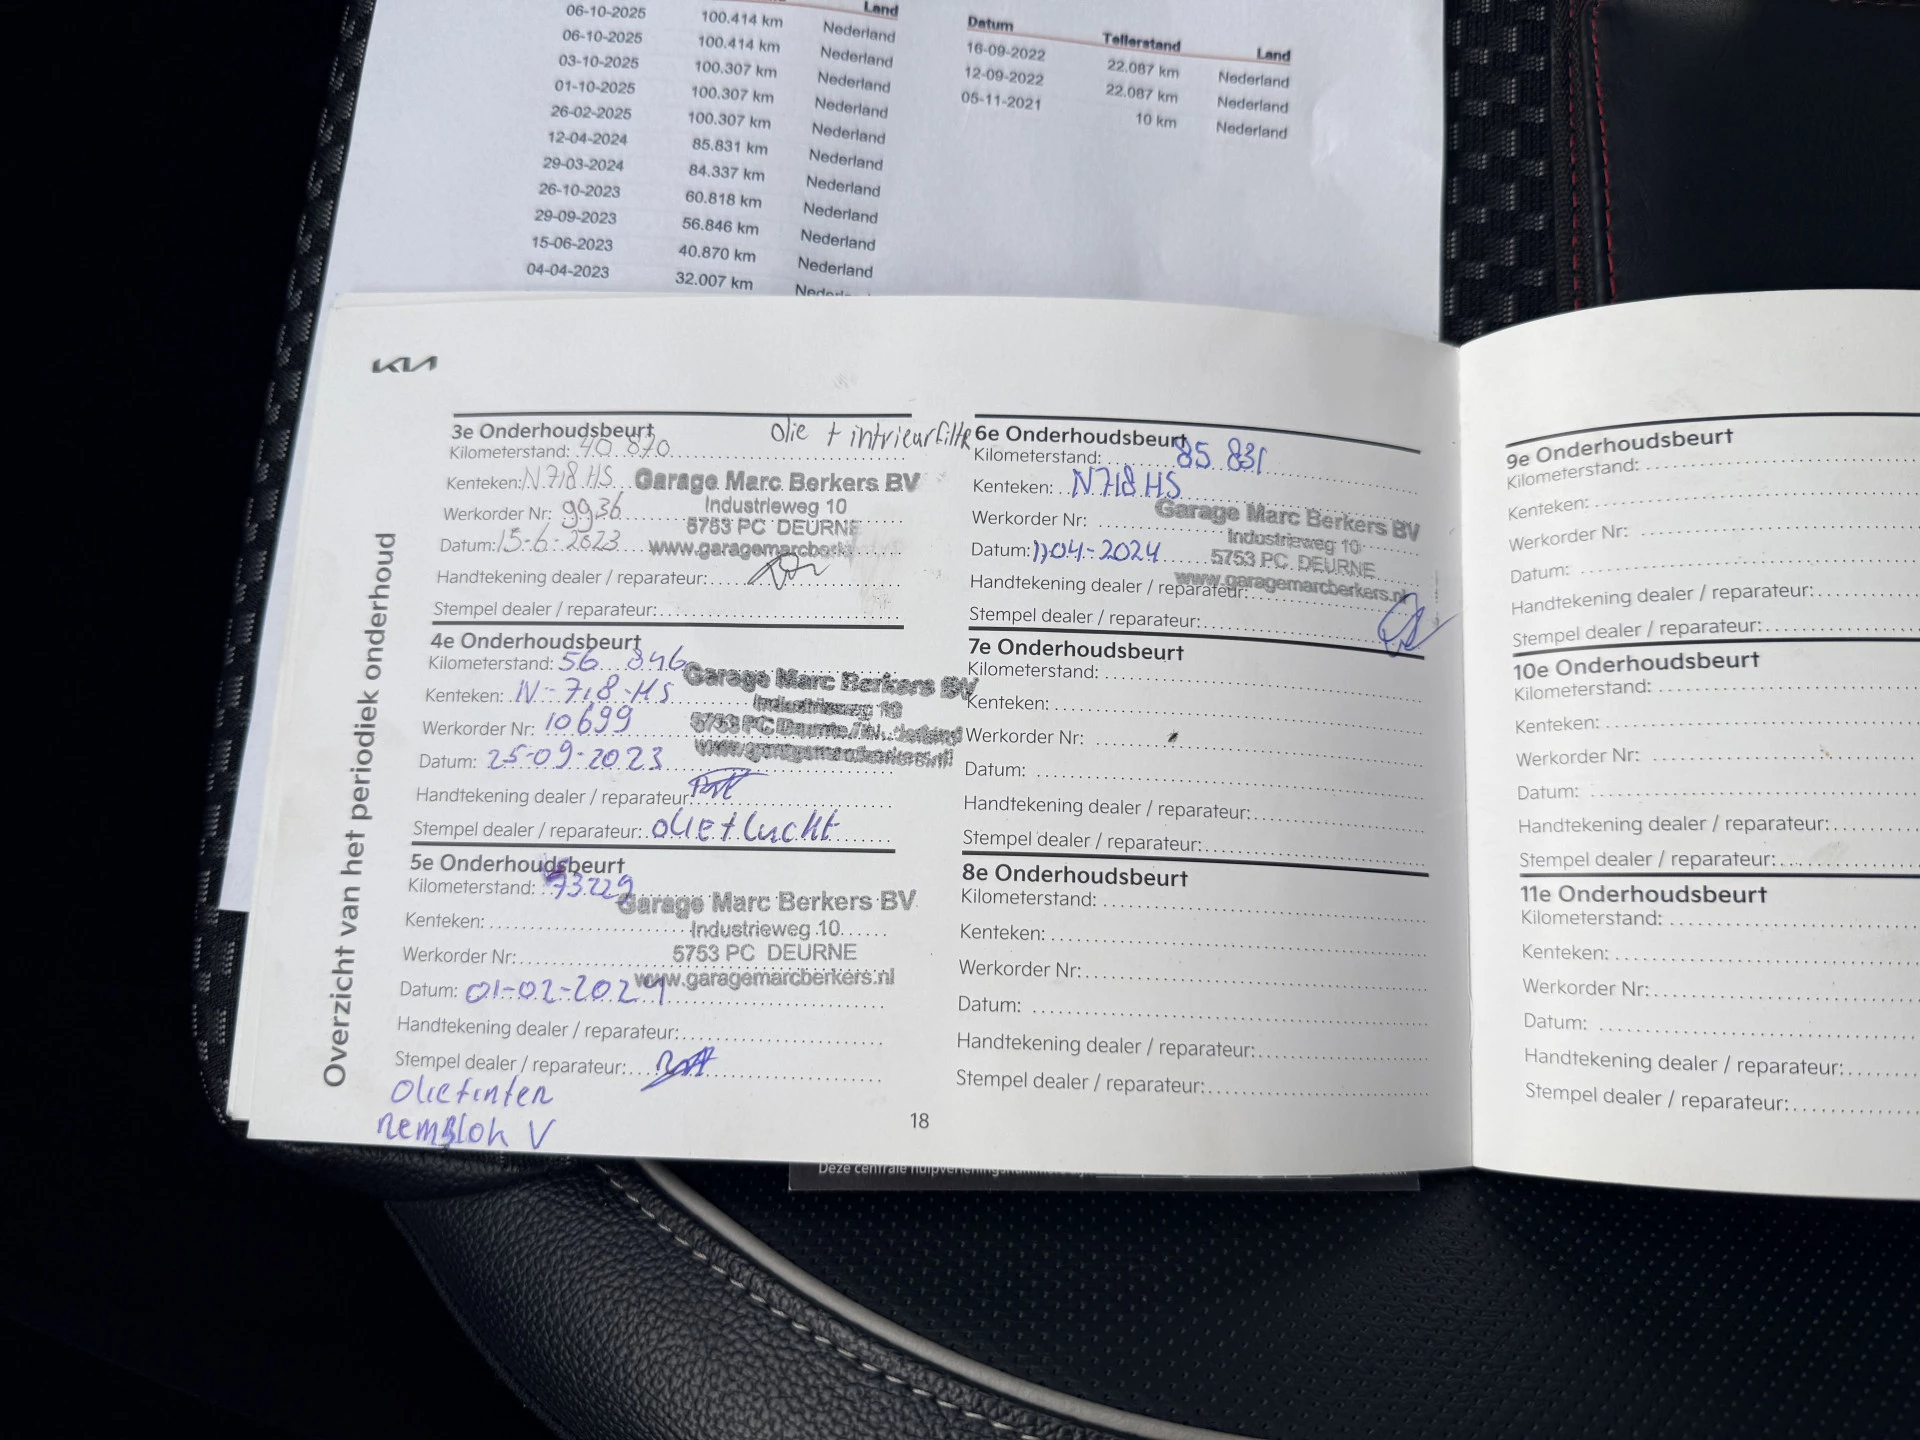 Land
06-10-2025 100.414 km Nederland
06-10-2025 100.414 km Nederland
03-10-2025 100.307 km Nederland
01-10-2025 100.307 km Nederland
26-02-2025 100.307 km Nederland
12-04-2024 85.831 km Nederland
29-03-2024 84.337 km Nederland
26-10-2023 60.818 km Nederland
29-09-2023 56.846 km Nederland
15-06-2023 40.870 km Nederland
04-04-2023 32.007 km
Datum Tellerstand Land
16-09-2022 22.087 km Nederland
12-09-2022 22.087 km Nederland
05-11-2021 10 km Nederland
KIA
Overzicht van het periodiek onderhoud
3e Onderhoudsbeurt olie + intrieurfiltr
Kilometerstand: 40 870
Kenteken: N.718.HS
Werkorder Nr: 9936
Datum: 15-6-2023
Handtekening dealer / reparateur:
Stempel dealer / reparateur:
Garage Marc Berkers BV
Industrieweg 10
5753 PC DEURNE
4e Onderhoudsbeurt
Kilometerstand: 56 846
Kenteken: N-718-HS
Werkorder Nr: 10699
Datum: 25-09-2023
Handtekening dealer / reparateur:
Stempel dealer / reparateur: olie + lucht
Garage Marc Berkers BV
Industrieweg 10
5e Onderhoudsbeurt
Kilometerstand: 73.229
Kenteken:
Werkorder Nr:
Datum: 01-02-2024
Handtekening dealer / reparateur:
Stempel dealer / reparateur:
Garage Marc Berkers BV
Industrieweg 10
5753 PC DEURNE
www.garagemarcberkers.nl
Remblok V
18
6e Onderhoudsbeurt
Kilometerstand: 85 831
Kenteken: N718HS
Werkorder Nr:
Datum: 11-04-2024
Handtekening dealer / reparateur:
Stempel dealer / reparateur:
Garage Marc Berkers BV
Industrieweg 10
5753 PC DEURNE
www.garagemarcberkers.nl
7e Onderhoudsbeurt
Kilometerstand:
Kenteken:
Werkorder Nr:
Datum:
Handtekening dealer / reparateur:
Stempel dealer / reparateur:
8e Onderhoudsbeurt
Kilometerstand:
Kenteken:
Werkorder Nr:
Datum:
Handtekening dealer / reparateur:
Stempel dealer / reparateur:
9e Onderhoudsbeurt
Kilometerstand:
Kenteken:
Werkorder Nr:
Datum:
Handtekening dealer / reparateur:
Stempel dealer / reparateur:
10e Onderhoudsbeurt
Kilometerstand:
Kenteken:
Werkorder Nr:
Datum:
Handtekening dealer / reparateur:
Stempel dealer / reparateur:
11e Onderhoudsbeurt
Kilometerstand:
Kenteken:
Werkorder Nr:
Datum:
Handtekening dealer / reparateur:
Stempel dealer / reparateur:
Deze centrale